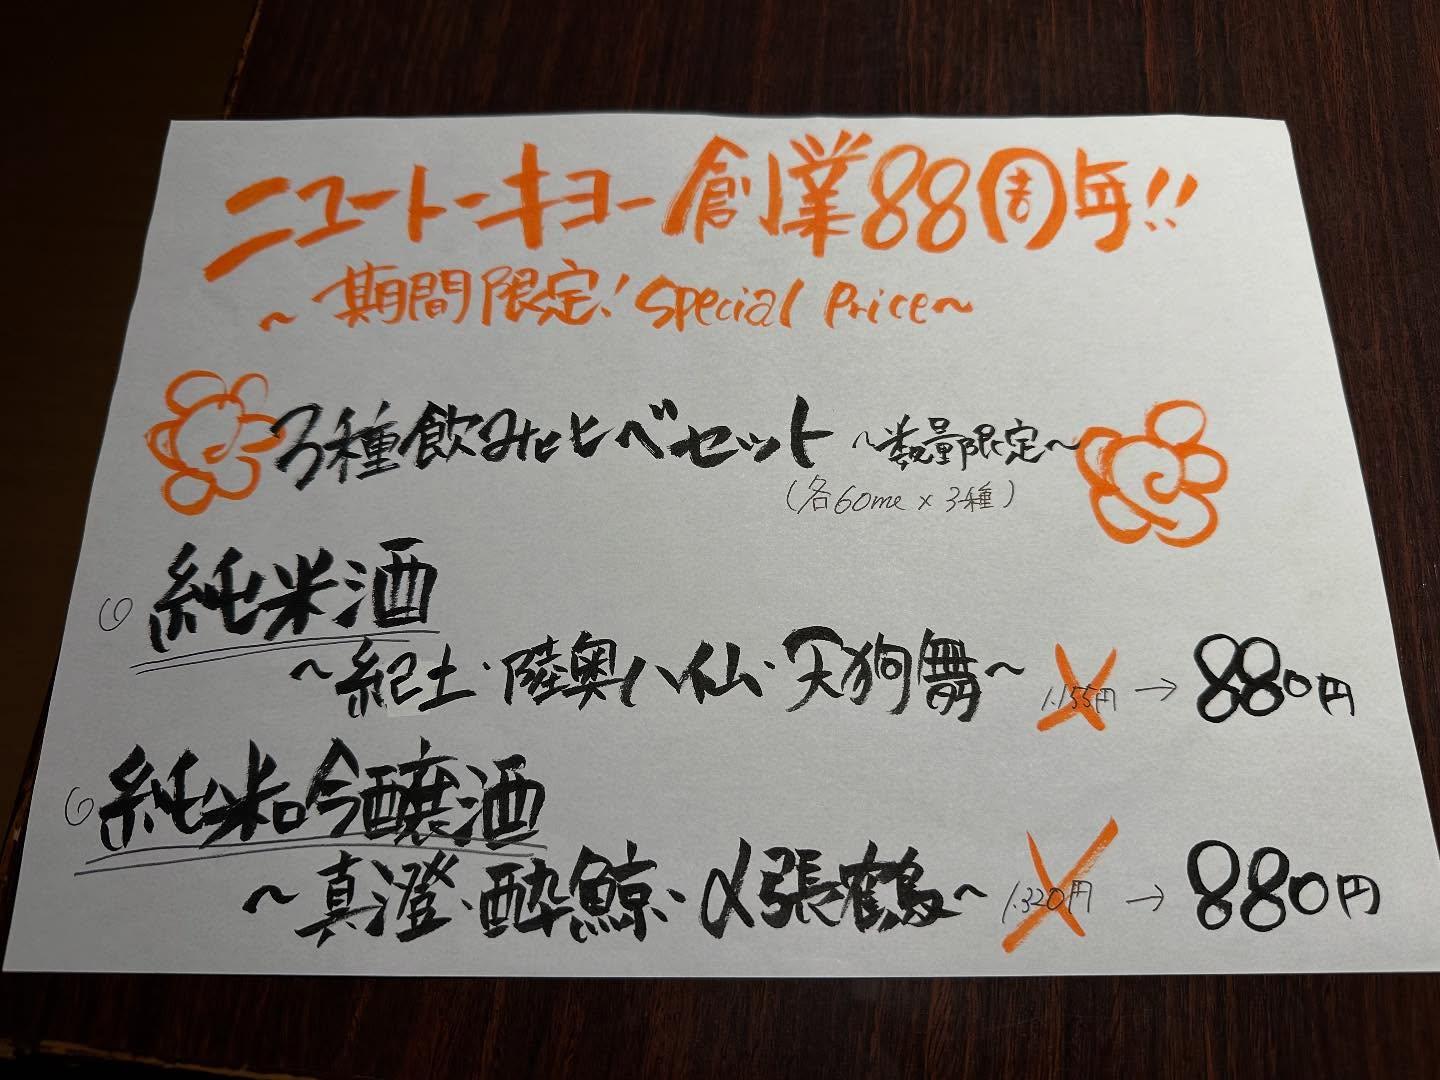 ニュートーキヨー創業88周年!!
~期間限定!Special Price~
3種飲みヒヒベセット ~数量限定~
(各60ml × 3種)
純米酒
~紀土・陸奥ハ仙・天狗舞~ 1.155円 → 880円
純米吟醸酒
~真澄・酔鯨・〆張鶴~ 1.320円 → 880円